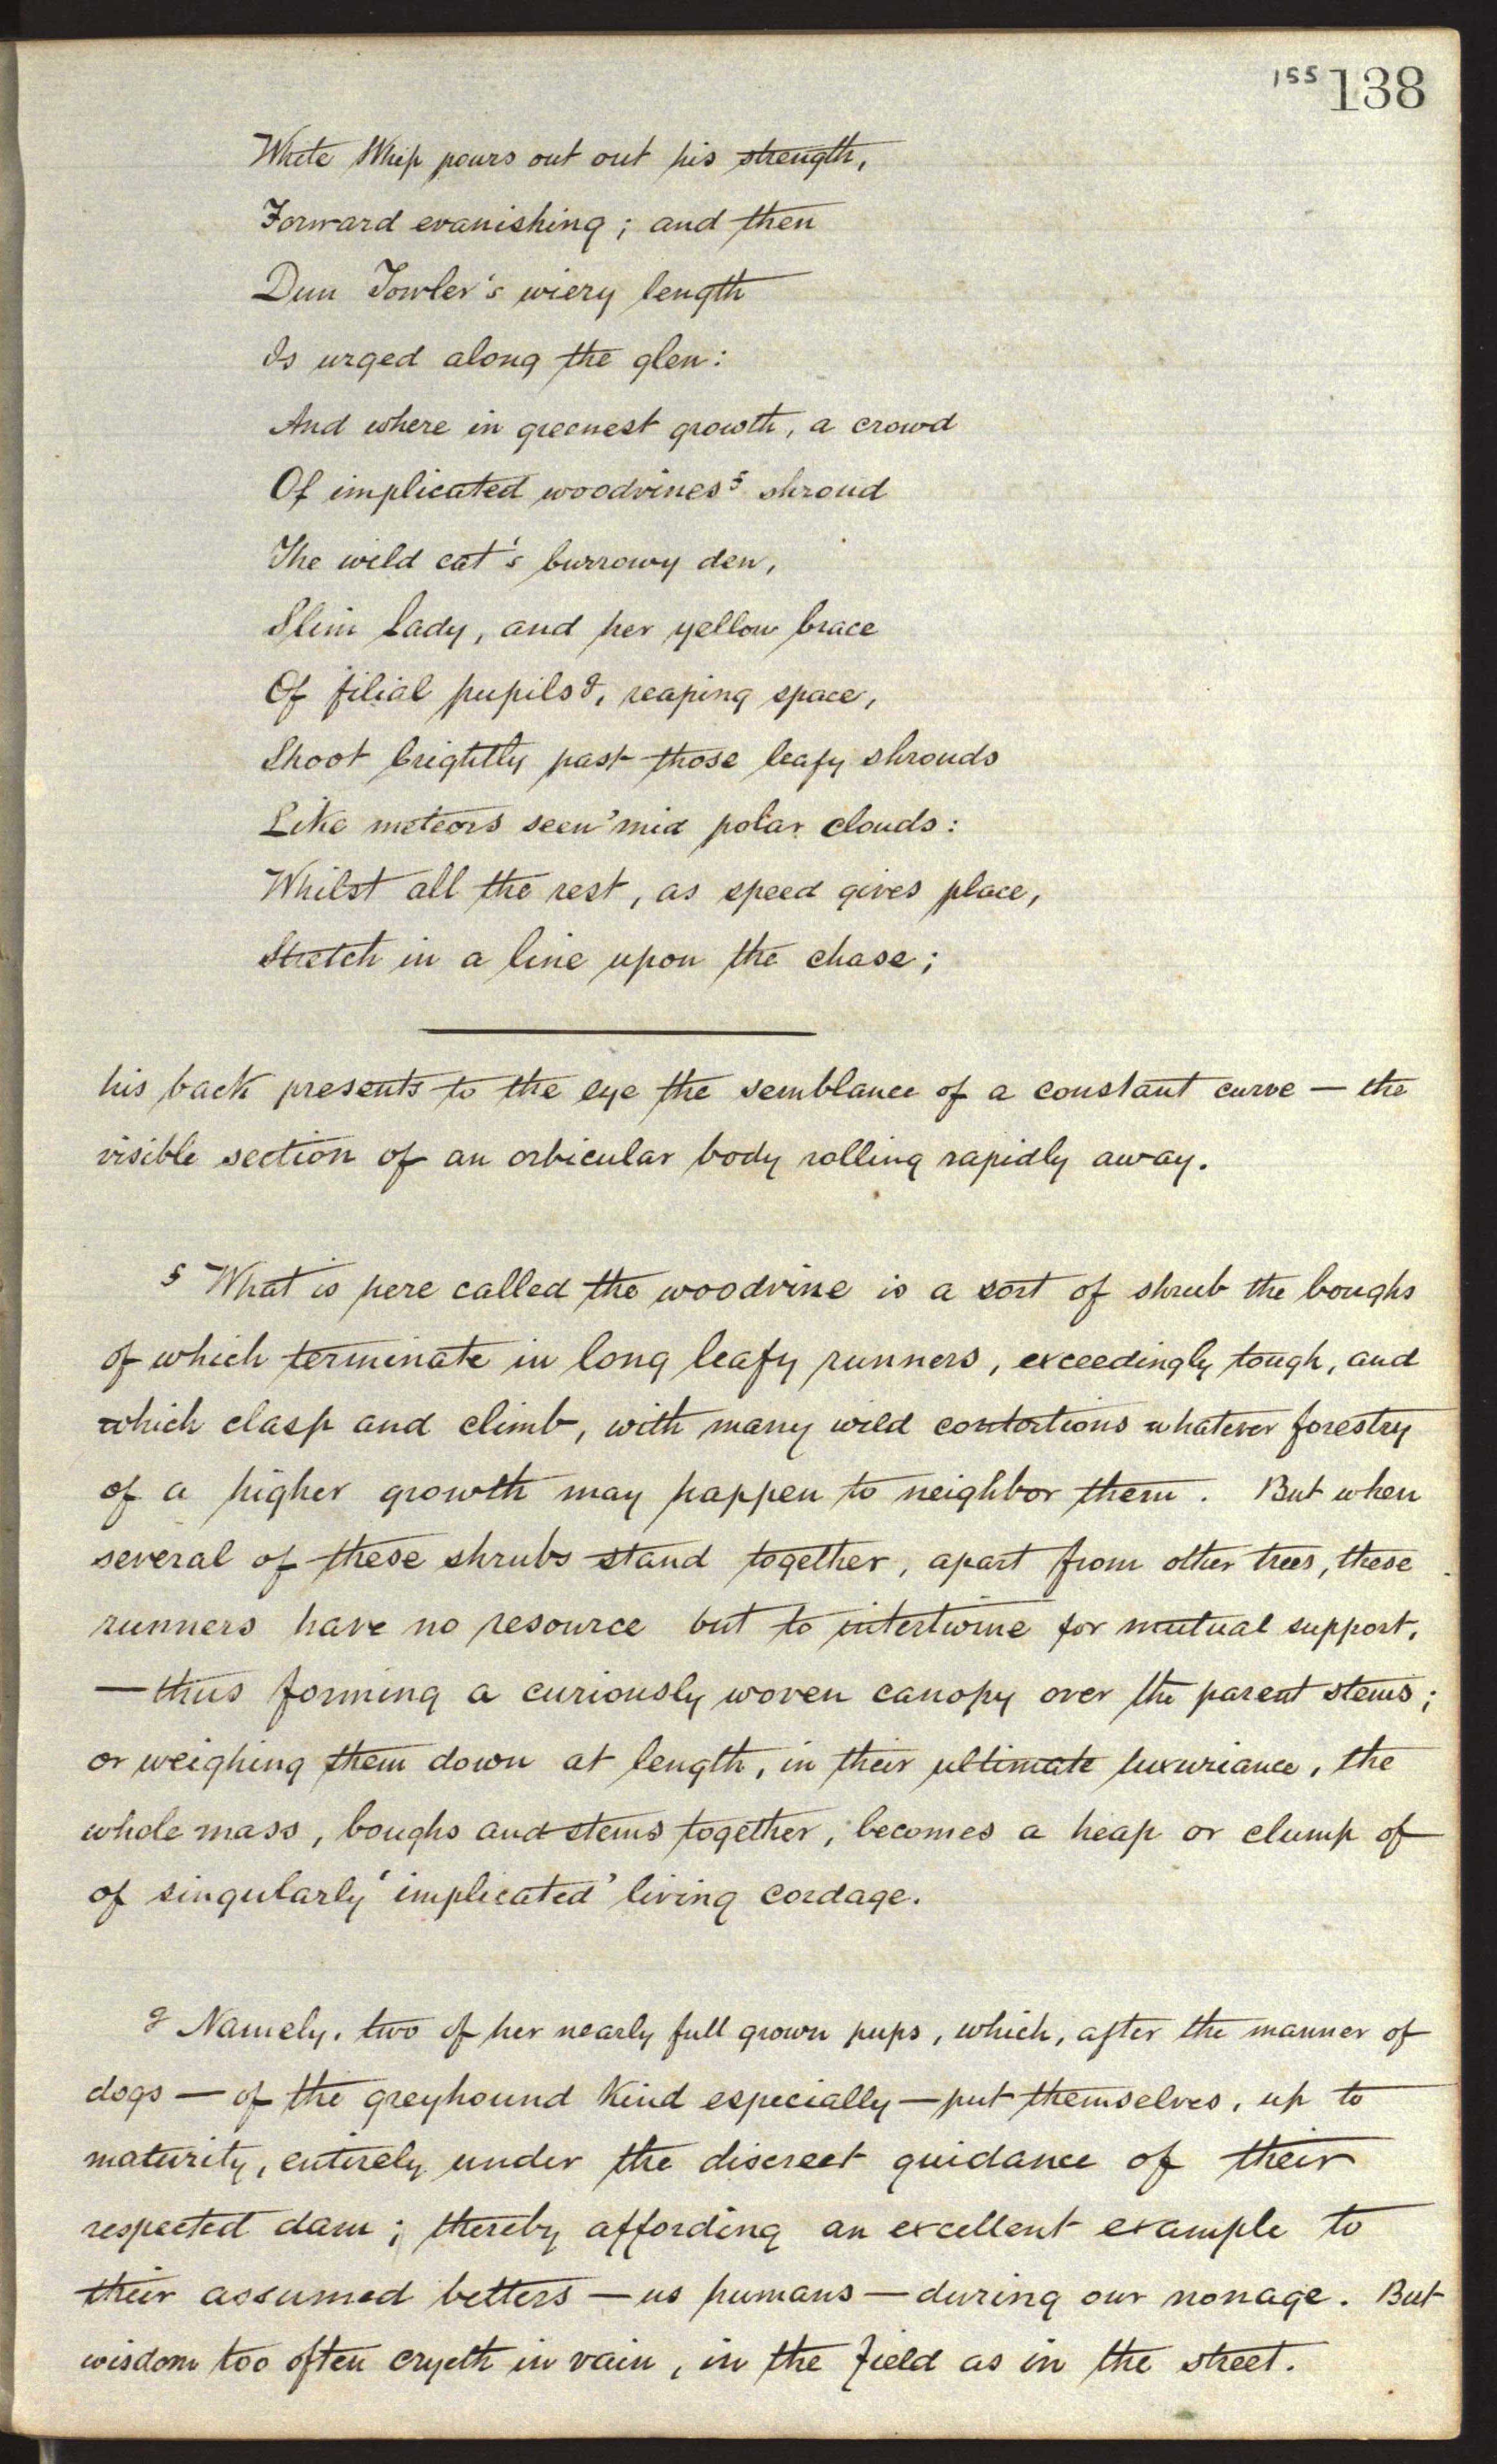 155 138
White Whip pours out out his strength,
Forward evanishing; and then
Dun Towler's wiery length
Is urged along the glen:
And where in greenest growth, a crowd
Of implicated woodvines§ shroud
The wild cat's burrowy den,
Slim Lady, and her yellow brace
Of filial pupils, reaping space,
Shoot brightly past those leafy shrouds
Like meteors seen 'mid polar clouds:
Whilst all the rest, as speed gives place,
Stretch in a line upon the chase;
his back presents to the eye the semblance of a constant curve — the
visible section of an orbicular body rolling rapidly away.
§ What is here called the woodvine is a sort of shrub the boughs
of which terminate in long leafy runners, exceedingly tough, and
which clasp and climb, with many wild contortions whatever forestry
of a higher growth may happen to neighbor them. But when
several of these shrubs stand together, apart from other trees, these
runners have no resource but to intertwine for mutual support,
— thus forming a curiously woven canopy over the parent stems;
or weighing them down at length, in their ultimate luxuriance, the
whole mass, boughs and stems together, becomes a heap or clump of
of singularly 'implicated' living cordage.
Namely, two of her nearly full grown pups, which, after the manner of
dogs — of the greyhound kind especially — put themselves, up to
maturity, entirely under the discreet guidance of their
respected dam; thereby affording an excellent example to
their assumed betters — us humans — during our nonage. But
wisdom too often cryeth in vain, in the field as in the street.